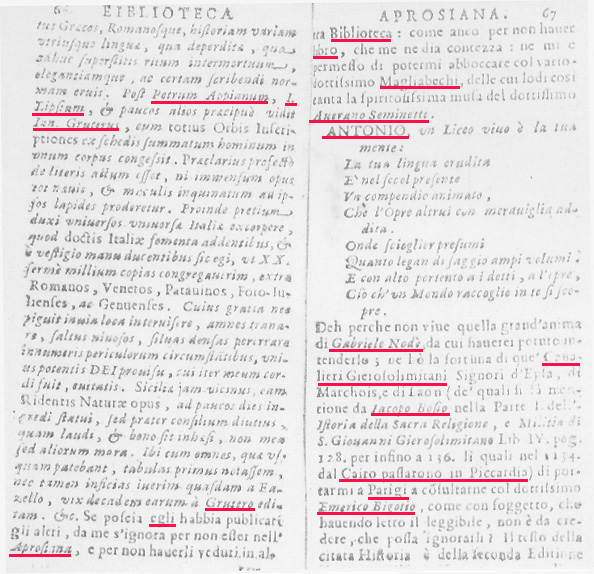 66 BIBLIOTECA
tus Græcos, Romanosque, historiam variam
utriusque linguæ, quæ deperdita, quæ
salvæ superstitis ruum intermortuum,
elegantiamque, ac certam scribendi nor-
mam eruit. Post Petrum Appianum, I.
Lipsium, & paucos alios præcipuè vidit
Ian. Gruterus, cum totius Orbis Inscri-
ptiones ex schedis summatum hominum in
unum corpus congessit. Præclarius profectò
de literis actum esset, ni immensum opus
tot nævis, & maculis inquinatum ad ip-
sos lapides proderetur. Proinde pretium
duxi universos universa Italiæ excorpere,
quod doctis Italiæ fomenta addentibus, &
è vestigio manu ducentibus sic egi, ut XX.
fermè millium copias congregaverim, extra
Romanos, Venetos, Patauinos, Foro-Iu-
lienses, ac Genuenses. Cuius gratia nec
piguit invia loca intervisere, amnes trana-
re, saltus nivosos, silvas densas pererrare
innumeris periculorum circumstātibus, uni-
us potentis DEI provisu, cui iter meum cor-
di fuit, evitatis. Siciliæ jam vicinus, eam
Ridentis Naturæ opus, ad paucos dies in-
gredi statui, sed præter consilium diutius,
quam laudi, & bono sit inhæsi, non meo
sed aliorum mora. Ibi cum omnes, quæ us-
quam patebant, tabulas primus notassem,
nec tamen inficias iverim quasdam a Fa-
zello, vix decadem earum à Grutero edi-
tam. &c. Se poscia egli habbia publicati
gli altri, da me s'ignora per non esser nell'
Aprosiana, e per non hauerli veduti in al-
APROSIANA. 67
tra Biblioteca: come anco per non hauer
libro, che me ne dia contezza: ne mi è
permesso di potermi abboccare col vario-
dottissimo Magliabechi, delle cui lodi così
canta la spiritosissima musa del dottissimo
Auerano Seminetti.
ANTONIO, vn Liceo viuo è la tua
mente:
La tua lingua erudita
E' nel secol presente
Va compendio animato,
Che l'Opre altrui con merauiglia ad-
dita.
Onde scioglier presumi
Quanto legan di saggio ampi volumi:
E con alto portento a i detti, a l'opre,
Ciò ch'vn Mondo raccoglie in te si sco-
pre.
Deh perche non viue quella grand'anima
di Gabriele Nodè, da cui hauerei potuto in-
tenderlo; ne fò la fortuna di que' Caua-
lieri Gierosolimitani Signori d'Epsa, di
Marchois, e di Laon (de' quali si fà men-
tione da Iacopo Bosio nella Parte I. dell'
Istoria della Sacra Religione, e Militia di
S. Giouanni Gierosolimitano Lib. IV. pag.
128. per insino a 136. li quali nel 1134.
dal Cairo passarono in Piccardia) di por-
tarmi a Parigi a cōsultarne col dottissimo
Emerico Bigotio, come con soggetto, che
hauendo letto il leggibile, non è da cre-
dere, che possa ignorarli? Il testo della
citata Historia è della seconda Editione